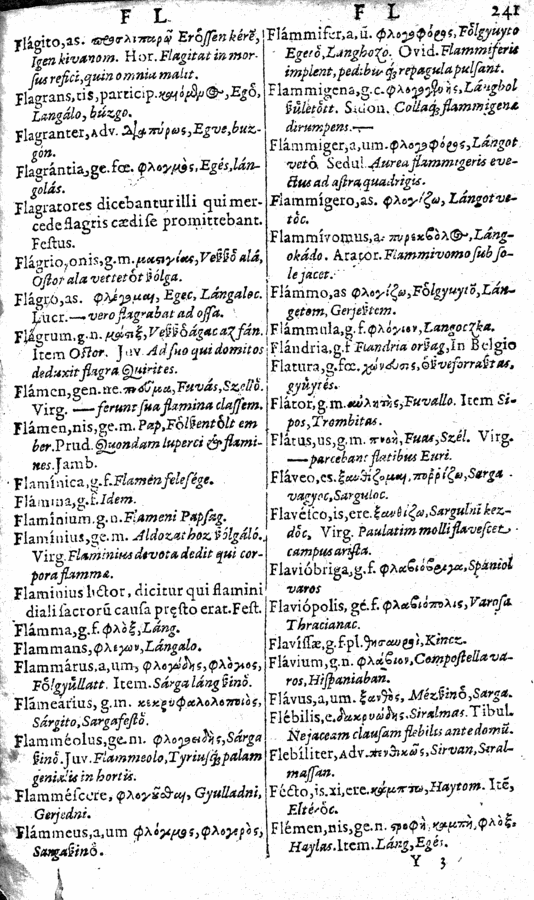 F L.
Flágito,as. Erőssen kérẽ,
Igen kivanom. Hor. Flagitat in mor-
sus refici, quin omnia malit.
Flagrans, tis, particip. Egő,
Langálo, búzgo.
Flagranter, Adv. Egve, buz-
gon.
Flagrántia, ge. fœ. φλογμὸς, Egés, lán-
golás.
Flagratores dicebantur illi qui mer-
cede flagris cædi se promittebant.
Festus.
Flágrio, onis, g.m. μαστιγίας, alá,
Ostor ala
Flágro, as. φλέγομαι, Egec, Lángaloc.
Lucr.— vero flagrabat ad ossa.
Flágrum, g.n. μάστιξ,
Item Ostor. Juv. Ad sua qui domitos
deduxit flagra Quirites.
Flámen, gen. ne. πνεῦμα, Fuvás, Szellő.
Virg. — ferunt sua flamina classem.
Flámen, nis, ge. m. Pap, em
ber. Prud. Quondam luperci & flami-
nes. Jamb.
Flamínica, g.f. Flamen felesége.
Flámina, g.f. Idem.
Flamínium. g.n. Flameni Papsag.
Flamínius, ge. m. Aldozathoz
Virg. Flaminius devota dedit qui cor-
pora flammæ.
Flaminius lictor, dicitur qui flamini
diali sacrorũ causa pręsto erat. Fest.
Flámma, g.f. φλὸξ, Láng.
Flammans, φλέγων, Lángalo.
Flammárus, a, um, φλογώδης, φλόγιος,
Item. Sárga láng
Flámearius, g.m.
Sárgito, Sargafestő.
Flamméolus, ge. m. φλογοειδὴς, Sárga
Juv. Flammeolo, Tyriusq́; palam
genialis in hortis.
Flamméscere, Gyulladni,
Gerjedni.
Flámmeus, a, um φλόγιμος, φλογερὸς,
F L 241
Flámmifer, a, ũ. φλογοφόρος,
Egerő, Langhozo. Ovid. Flammiferis
implent, pedibusq́; repagula pulsant.
Flammígena, g.c. Lángbol
Sidon. Collaq́; flammigenæ
dirumpens.—
Flámmiger, a, um. φλογοφόρος, Lángot
vető. Sedul. Aurea flammigeris eve-
ctus ad astra quadrigis.
Flammígero, as. φλογίζω, Lángot ve-
tőc.
Flammívomus, a. πυρεκβόλος, Láng-
okádo. Arator. Flammivomo sub so-
le jacet.
Flámmo, as φλογίζω, Lán-
getem,
Flámmula, g.f. φλόγιον, Langoczka.
Flándria, g.f. Flandria orszag, In Belgio
Flatura, g.fœ. χώνευσις,
Flátor, g.m. αὐλητὴς, Fuvallo. Item Si-
pos, Trombitas.
Flátus, us, g.m. πνοὴ, Fuas, Szél. Virg.
—parcebant flatibus Euri.
Fláveo, es. ξανθίζομαι, πυῤῥίζω, Sarga
vagyoc, Sarguloc.
Flavésco, is, ere. ξανθίζω, Sargulni kez-
dőc, Virg. Paulatim molli flavescet
campus arista.
Flavióbriga, g.f. φλαβιόβριγα, Spaniol
varos
Flaviópolis, gé. f. φλαβιόπολις, Varosa
Thracianac.
Flavíssæ, g.f.pl. θησαυροὶ, Kincz.
Flávium, g.n. φλάβιον, Compostella va-
ros, Hispaniaban.
Flávus, a, um. ξανθὸς, Sarga.
Flébilis, e. δακρυώδης. Siralmas. Tibul.
Ne jaceam clausam flebilis ante domũ.
Flebíliter, Adv. Sirvan, Siral-
massan.
Flécto, is, xi, ere. κάμπτω, Haytom. Itẽ,
Eltéröc.
Flémen, nis, ge. n. φλὸξ.
Haylas. Item. Láng, Egés.
Y 3